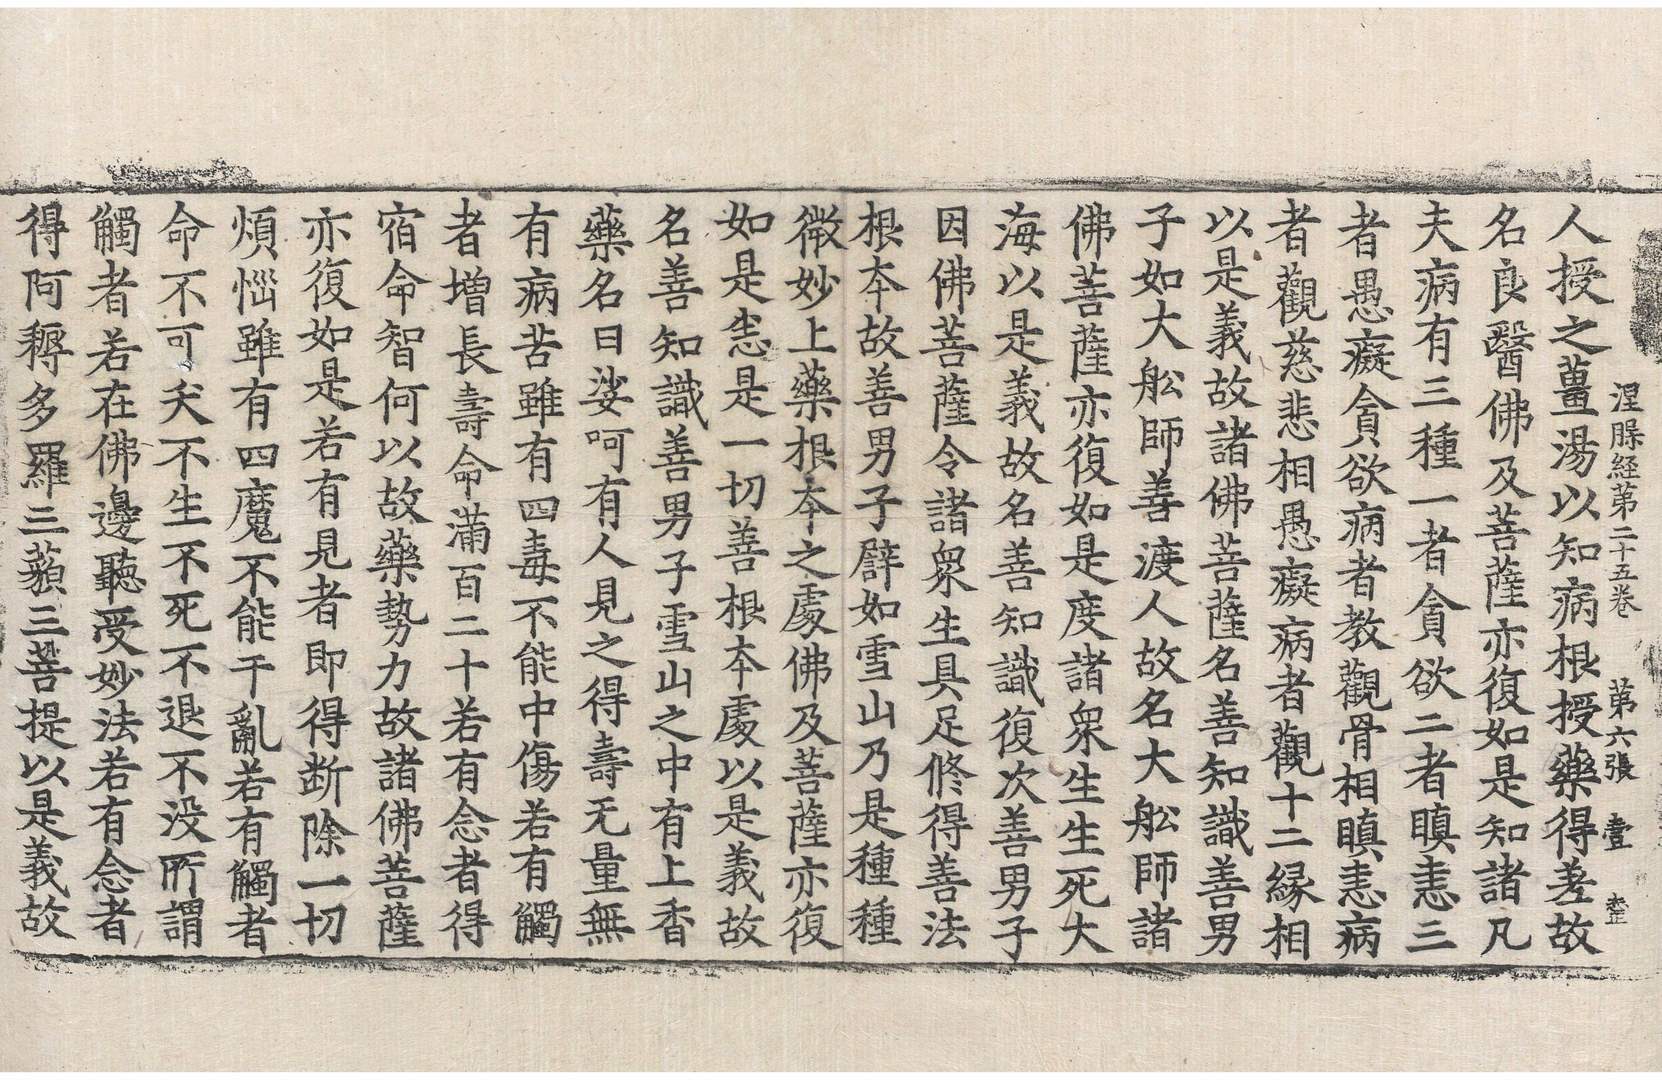 涅槃経第二十五巻 第六張 壹
人授之薑湯以知病根授藥得差故
名良醫佛及菩薩亦復如是知諸凡
夫病有三種一者貪欲二者瞋恚三
者愚癡貪欲病者教觀骨相瞋恚病
者觀慈悲相愚癡病者觀十二縁相
以是義故諸佛菩薩名善知識善男
子如大舩師善渡人故名大舩師諸
佛菩薩亦復如是度諸衆生生死大
海以是義故名善知識復次善男子
因佛菩薩令諸衆生具足修得善法
根本故善男子譬如雪山乃是種種
微妙上藥根本之處佛及菩薩亦復
如是悉是一切善根本處以是義故
名善知識善男子雪山之中有上香
藥名曰娑呵有人見之得壽无量無
有病苦雖有四毒不能中傷若有觸
者増長壽命滿百二十若有念者得
宿命智何以故藥勢力故諸佛菩薩
亦復如是若有見者即得断除一切
煩惱雖有四魔不能干亂若有觸者
命不可夭不生不死不退不没所謂
觸者若在佛邊聽受妙法若有念者
得阿耨多羅三藐三菩提以是義故